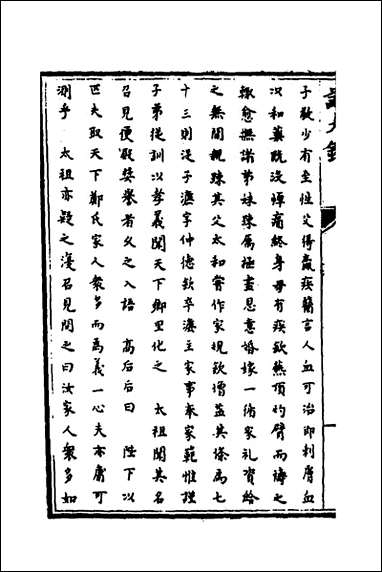 子敎少有至性父得羸疾醫言人血可治即刺膚血
況和藥旣沒悼痛終身母有疾欽爇頂灼臂而禱之
輒愈撫諸弟妹踈属極盡恩意婚嫁一循家礼資給
之無閒親踈其父太和嘗作家規欽增益其條為七
十三則從子濂字仲德欽卒濂主家事奉家範惟謹
子弟從訓以孝義聞天下鄉里化之　太祖聞其名
召見便殿奬誉若父之入語　高后后曰　陛下以
匹夫取天下鄭氏家人衆多而為義一心夫亦庸可
測乎　太祖亦疑之漫召見問之曰汝家人衆多如